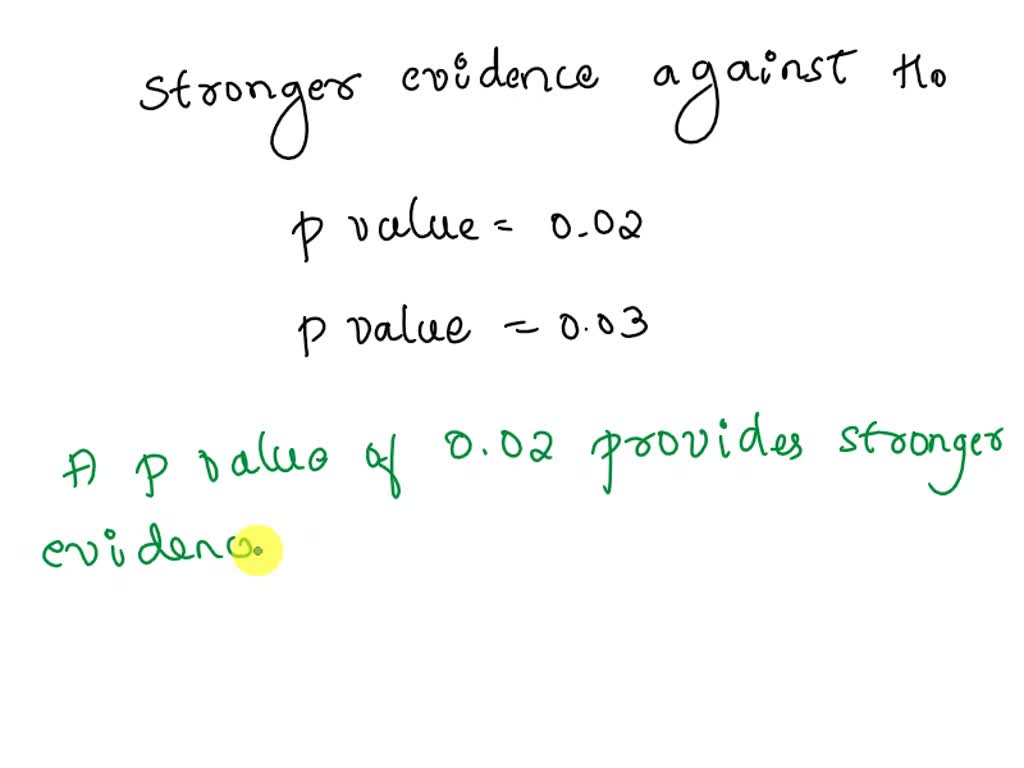 Stronger evidence against H0
p value = 0.02
p value = 0.03
A p value of 0.02 provides stronger
evidenc